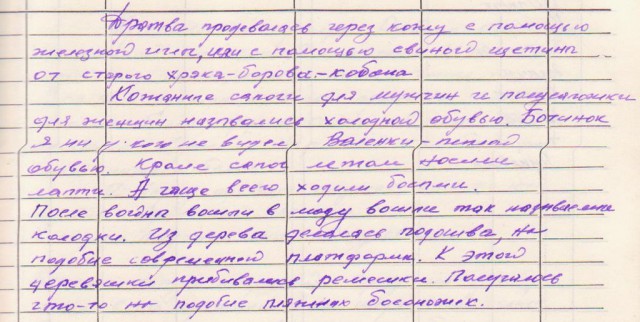 Дратва продевалась через кожу с помощью
железной иглы, или с помощью свиного щетины
от старого хряка-борова-кабана
Кожанные сапоги для мужчин и полусапожки
для женщин назывались холодной обувью. Ботинок
я ни у кого не видел. Валенки - теплой
обувью. Кроме сапог летом носили
лапти. А чаще всего ходили босыми.
После войны вошли в моду вошли так называемые
колодки. Из дерева делалась подошва,
подобие современной платформы. К этой
деревяшки прибивались ремешки. Получалось
что-то подобие пляжных босоножек.